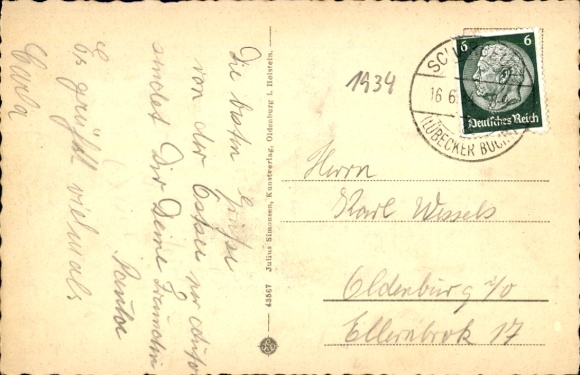 Die besten Grüße
von der Ostsee
sendet Dir Deine Freundin
Es grüßt vielmals
1934
43567 Julius Simonsen, Kunstverlag, Oldenburg i. Holstein.
6 6
Deutsches Reich
16.6.
(LÜBECKER BUCHT)
Herrn
Karl Wessels
Oldenburg i/o
Ellernbrok 17